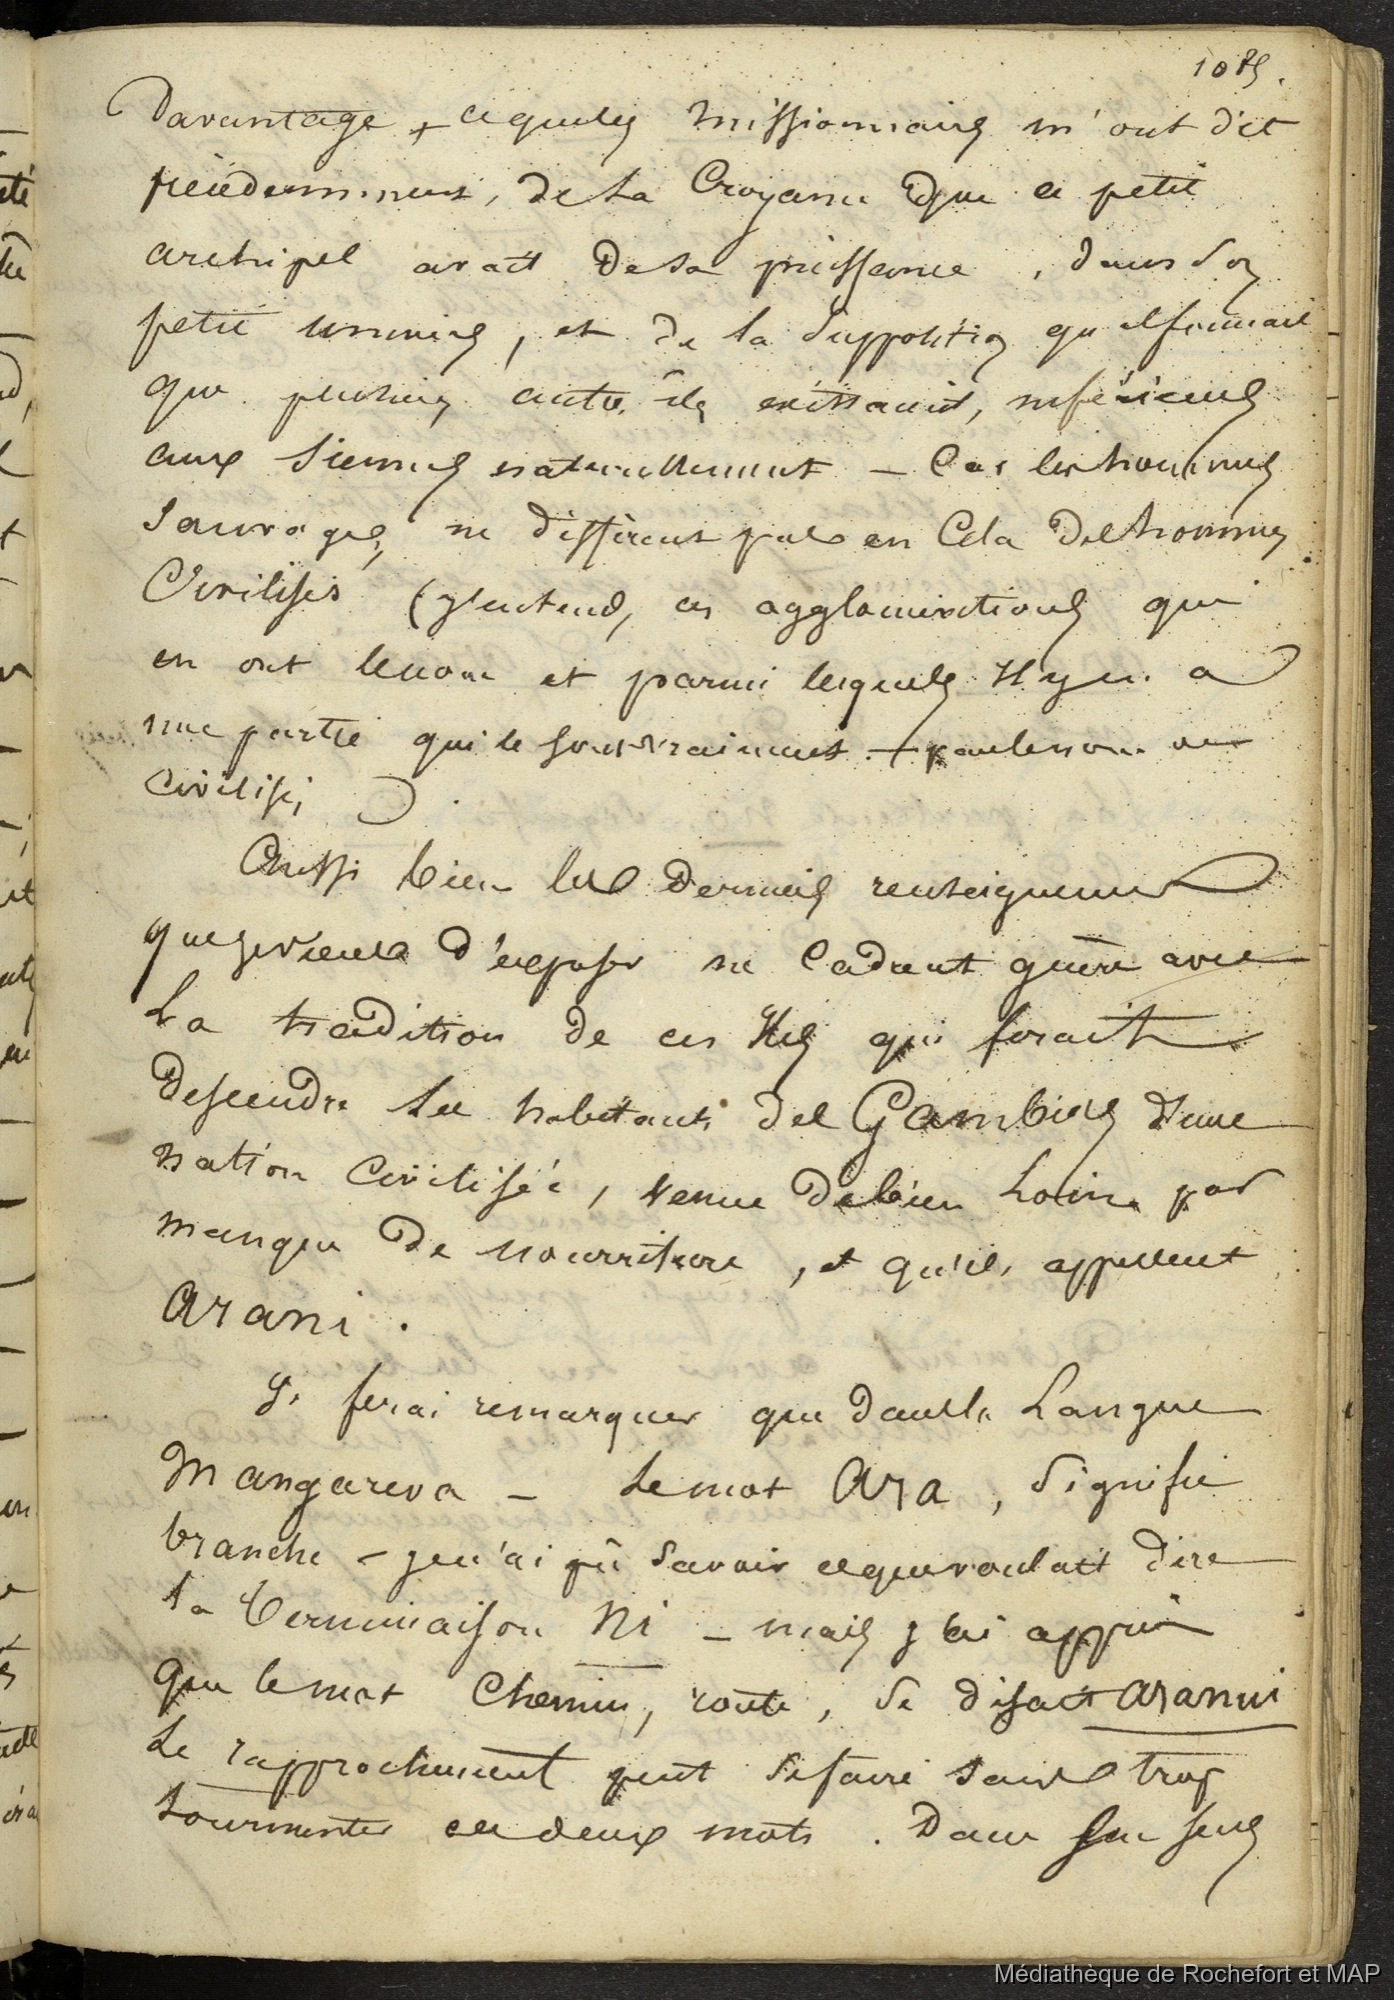 1075.
Davantage + ceque les missionnaires m'ont dit
précédemment, de la Croyance que ce petit
archipel avait de sa puissance, dans son
petit univers, et de la supposition qu'il formait
que plusieurs autres îles existaient, inférieures
aux siennes naturellement — Car les hommes
sauvages, ne diffèrent pas en Cela des hommes
Civilisés (j'entend, ces agglomérations qui
en ont le nom et parmi lesquels Il y en a
une partie qui le sont vraiment +
civilisés ).
Aussi bien les derniers renseignements
que je viens d'exposer ne Cadrent guère avec
La tradition de ces Iles qui ferait
descendre les habitants des Gambiers d'une
nation Civilisée, venue de bien Loin par
manque de nourriture, et qu'ils appellent
Arani.
Je ferai remarquer que dans la Langue
Mangareva — Le mot Ara, signifie
branche — je n'ai pû savoir ceque voulait dire
la terminaison Ni — mais j'ai appris
que le mot Chemin, route, se disait Aranui
Le rapprochement peut se faire sans trop
tourmenter ces deux mots. Dans son sens
Médiathèque de Rochefort et MAP